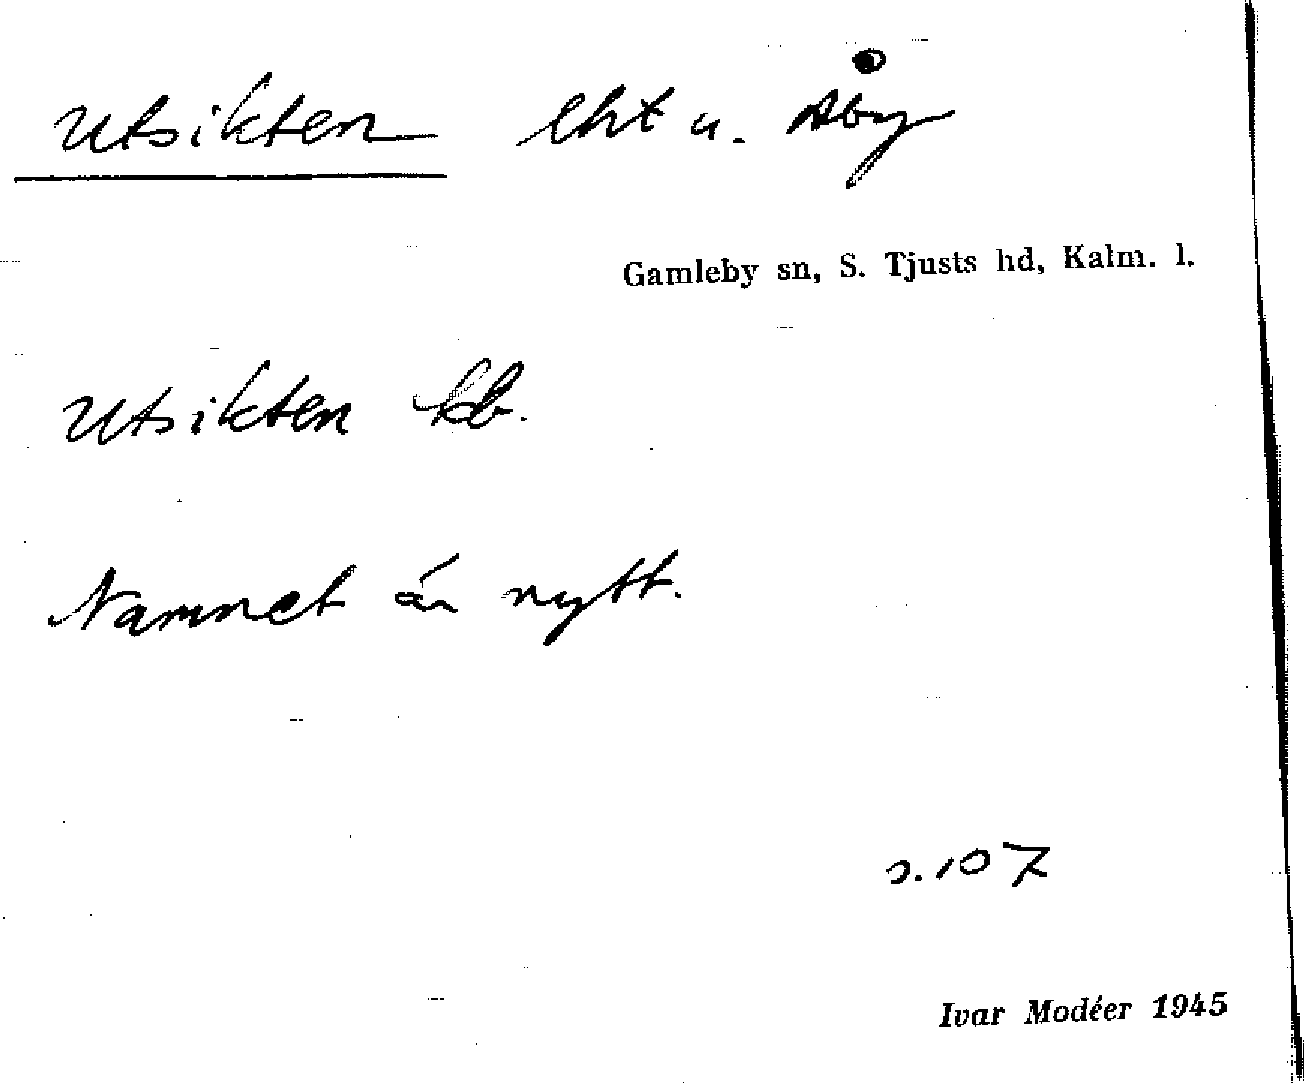 Utsikten lht u. Åby
Gamleby sn, S. Tjusts hd, Kalm. l.
Utsikten kb.
Namnet är nytt.
s. 107
Ivar Modéer 1945